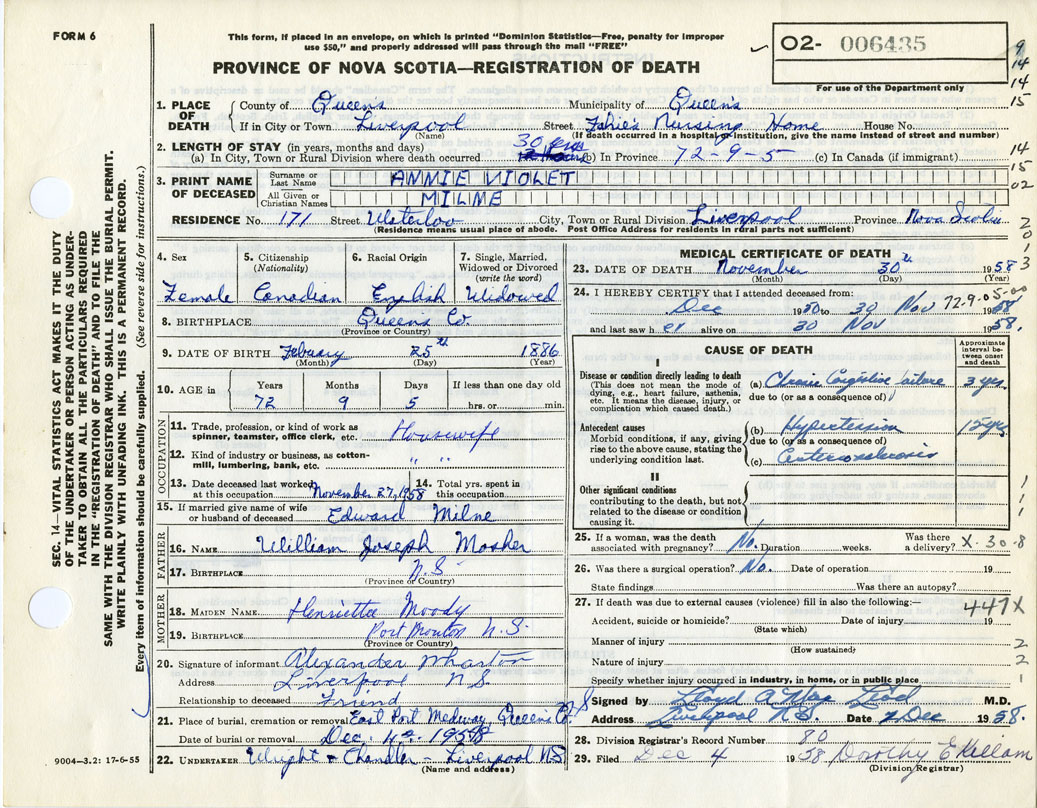 FORM 6
This form, if placed in an envelope, on which is printed "Dominion Statistics—Free, penalty for improper
use $50," and properly addressed will pass through the mail "FREE"
02- 006435
For use of the Department only
PROVINCE OF NOVA SCOTIA—REGISTRATION OF DEATH
9
14
14
15
14
15
02
2
0
1
3
SEC. 14—VITAL STATISTICS ACT MAKES IT THE DUTY
OF THE UNDERTAKER OR PERSON ACTING AS UNDER-
TAKER TO OBTAIN ALL THE PARTICULARS REQUIRED
IN THE "REGISTRATION OF DEATH" AND TO FILE THE
SAME WITH THE DIVISION REGISTRAR WHO SHALL ISSUE THE BURIAL PERMIT.
WRITE PLAINLY WITH UNFADING INK. THIS IS A PERMANENT RECORD.
Every item of information should be carefully supplied. (See reverse side for instructions.)
1. PLACE OF DEATH
County of Queens Municipality of Queens
If in City or Town Liverpool Street Nursing Home House No.
(Name) (If death occurred in a hospital or institution, give the name instead of street and number)
2. LENGTH OF STAY (in years, months and days)
(a) In City, Town or Rural Division where death occurred 30 (b) In Province 72-9-5 (c) In Canada (if immigrant)
3. PRINT NAME OF DECEASED
Surname or Last Name ANNIE VIOLET
All Given or Christian Names MILNE
RESIDENCE No. 171 Street Waterloo City, Town or Rural Division Liverpool Province Nova Scotia
(Residence means usual place of abode. Post Office Address for residents in rural parts not sufficient)
4. Sex
Female
5. Citizenship
(Nationality)
Canadian
6. Racial Origin
English
7. Single, Married,
Widowed or Divorced
(write the word)
Widowed
8. BIRTHPLACE Queens Co.
(Province or Country)
9. DATE OF BIRTH February 25th 1886
(Month) (Day) (Year)
10. AGE in
Years Months Days If less than one day old
72 9 5 hrs. or min.
OCCUPATION
11. Trade, profession, or kind of work as
spinner, teamster, office clerk, etc. Housewife
12. Kind of industry or business, as cotton-
mill, lumbering, bank, etc. " "
13. Date deceased last worked
at this occupation November 27, 1958
14. Total yrs. spent in
this occupation
15. If married give name of wife
or husband of deceased Edward Milne
FATHER
16. NAME William Joseph Mosher
17. BIRTHPLACE N.S.
(Province or Country)
MOTHER
18. MAIDEN NAME Henrietta Moody
19. BIRTHPLACE Port Mouton N.S.
(Province or Country)
20. Signature of informant Alexander Wharton
Address Liverpool N.S.
Relationship to deceased Friend
21. Place of burial, cremation or removal East Port Medway, Queens Co. N.S
Date of burial or removal Dec. 4th 1958
22. UNDERTAKER Wright & Chandler - Liverpool NS
(Name and address)
9004—3.2: 17-6-55
MEDICAL CERTIFICATE OF DEATH
23. DATE OF DEATH November 30th 1958
(Month) (Day) (Year)
24. I HEREBY CERTIFY that I attended deceased from: 72.9.05-00
Dec 1950 to 30 Nov 1958
and last saw her alive on 30 Nov 1958.
CAUSE OF DEATH
Approximate
interval be-
tween onset
and death
I
Disease or condition directly leading to death
(This does not mean the mode of
dying, e.g., heart failure, asthenia,
etc. It means the disease, injury, or
complication which caused death.)
(a) Chronic Congestive failure 3 yrs.
due to (or as a consequence of)
Antecedent causes
Morbid conditions, if any, giving
rise to the above cause, stating the
underlying condition last.
(b) Hypertension 15 yrs
due to (or as a consequence of)
(c)
II
Other significant conditions
contributing to the death, but not
related to the disease or condition
causing it.
1
1
1
25. If a woman, was the death
associated with pregnancy? No. Duration weeks. Was there
a delivery? X-30-8
26. Was there a surgical operation? No. Date of operation 19
State findings Was there an autopsy?
27. If death was due to external causes (violence) fill in also the following:— 447X
Accident, suicide or homicide? Date of injury 19
(State which)
Manner of injury 2
(How sustained)
Nature of injury 2
Specify whether injury occurred in industry, in home, or in public place 1
Signed by M.D.
Address Liverpool N.S. Date 2 Dec 1958.
28. Division Registrar's Record Number 80
29. Filed Dec 4 1958 Dorothy E Killam
(Division Registrar)